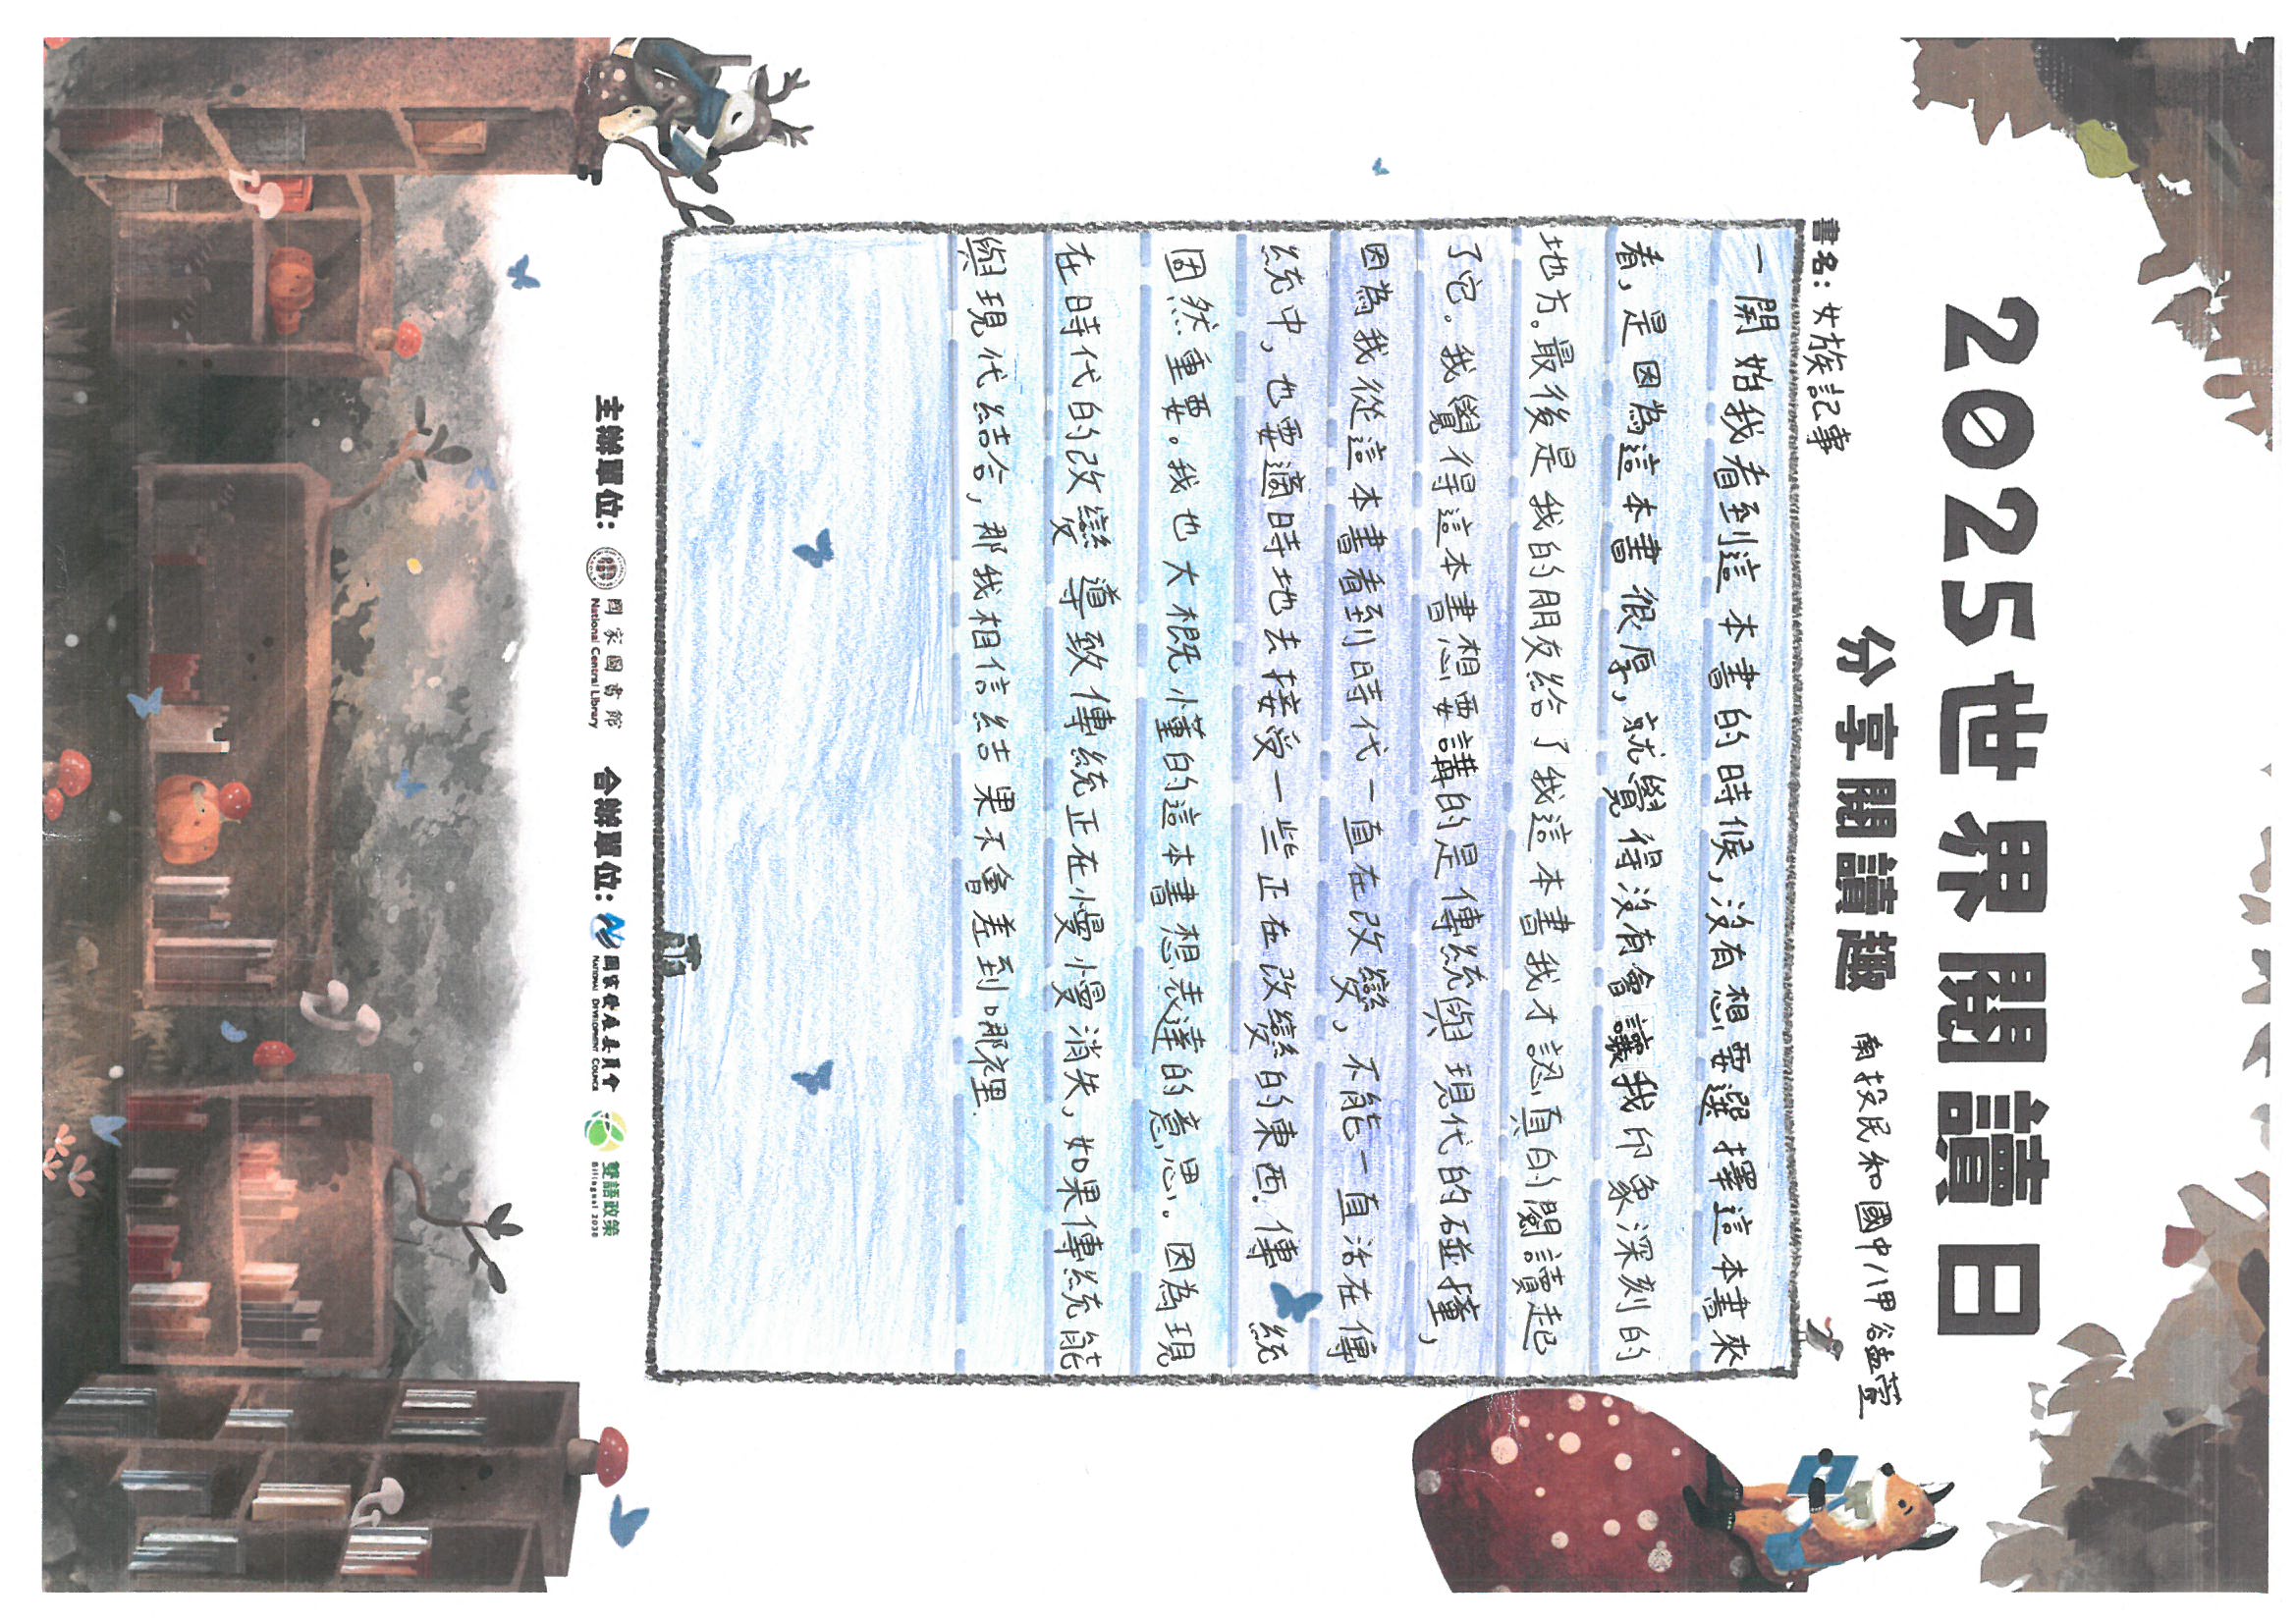 2025世界閱讀日
分享閱讀趣
南投民和國中八甲谷孟萱
書名：女族記事
一開始我看到這本書的時候，沒有想要選擇這本書來
看，是因為這本書很厚，就覺得沒有會讓我印象深刻的
地方。最後是我的朋友給了我這本書我才認真的閱讀起
了它。我覺得這本書想要講的是傳統與現代的碰撞，
因為我從這本書看到時代一直在改變，不能一直活在傳
統中，也要適時地去接受一些正在改變的東西。傳統
固然重要。我也大概懂的這本書想表達的意思。因為現
在時代的改變導致傳統正在慢慢消失，如果傳統能
與現代結合，那我相信結果不會差到哪裡。
主辦單位：國家圖書館 National Central Library 合辦單位：國家發展委員會 NATIONAL DEVELOPMENT COUNCIL 雙語政策 Bilingual 2030